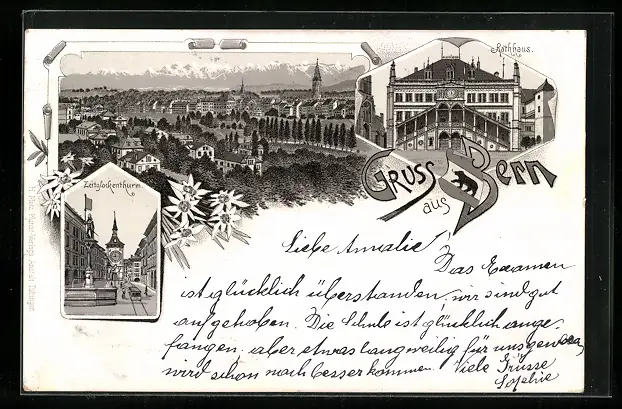 Rathhaus.
Zeitglockenthurm.
Gruss
aus
Bern
Liebe Amalie!
Das Examen
ist glücklich überstanden, wir sind gut
aufgehoben. Die Schule ist glücklich ange-
fangen, aber etwas langweilig für uns gewesen,
wird schon noch besser kommen. Viele Grüsse
Sophie